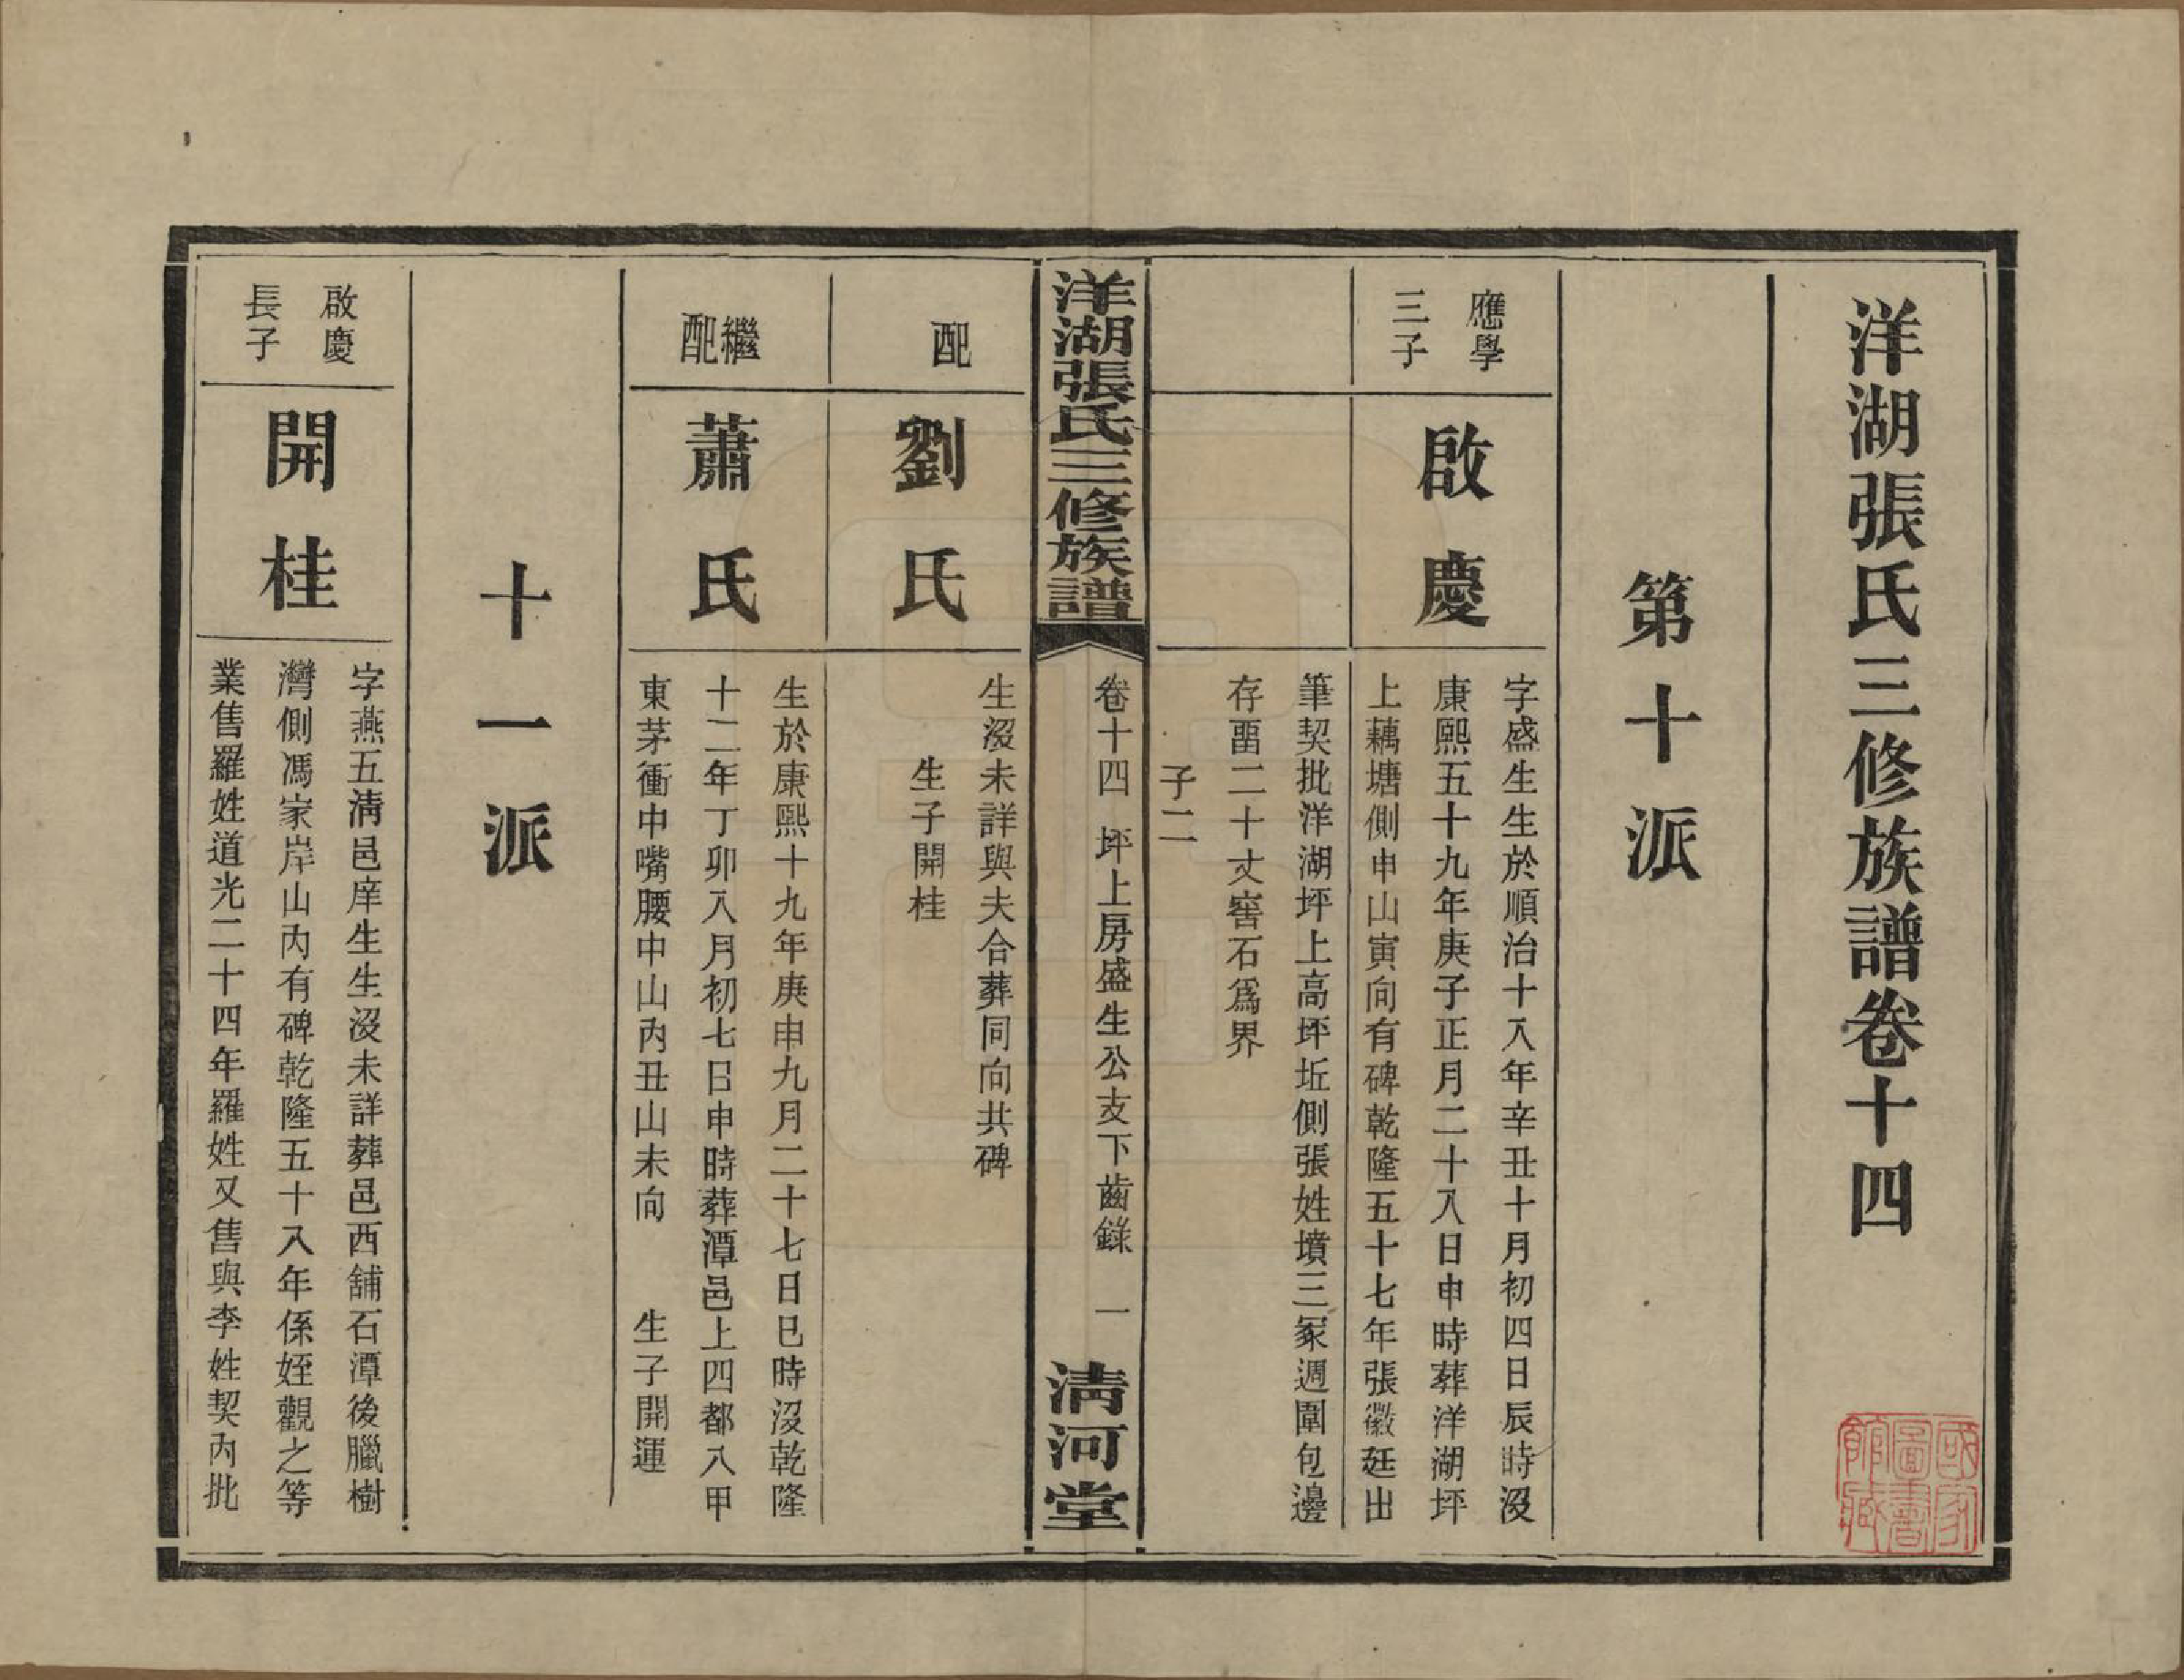 洋湖張氏三修族譜卷十四
國家圖書館藏
第十派
應學
三子
啟慶
字盛生生於順治十八年辛丑十月初四日辰時沒
康熙五十九年庚子正月二十八日申時葬洋湖坪
上藕塘側申山寅向有碑乾隆五十七年張徽廷出
筆契批洋湖坪上高坪坵側張姓墳三冢週圍包邊
存畱二十丈窖石為界
子二
洋湖張氏三修族譜
卷十四 坪上房盛生公支下齒錄 一
清河堂
配
劉氏
生沒未詳與夫合葬同向共碑
生子開桂
繼配
蕭氏
生於康熙十九年庚申九月二十七日巳時沒乾隆
十二年丁卯八月初七日申時葬潭邑上四都八甲
東茅衝中嘴腰中山內丑山未向 生子開運
十一派
啟慶
長子
開桂
字燕五清邑庠生生沒未詳葬邑西舖石潭後臘樹
灣側馮家岸山內有碑乾隆五十八年係姪觀之等
業售羅姓道光二十四年羅姓又售與李姓契內批